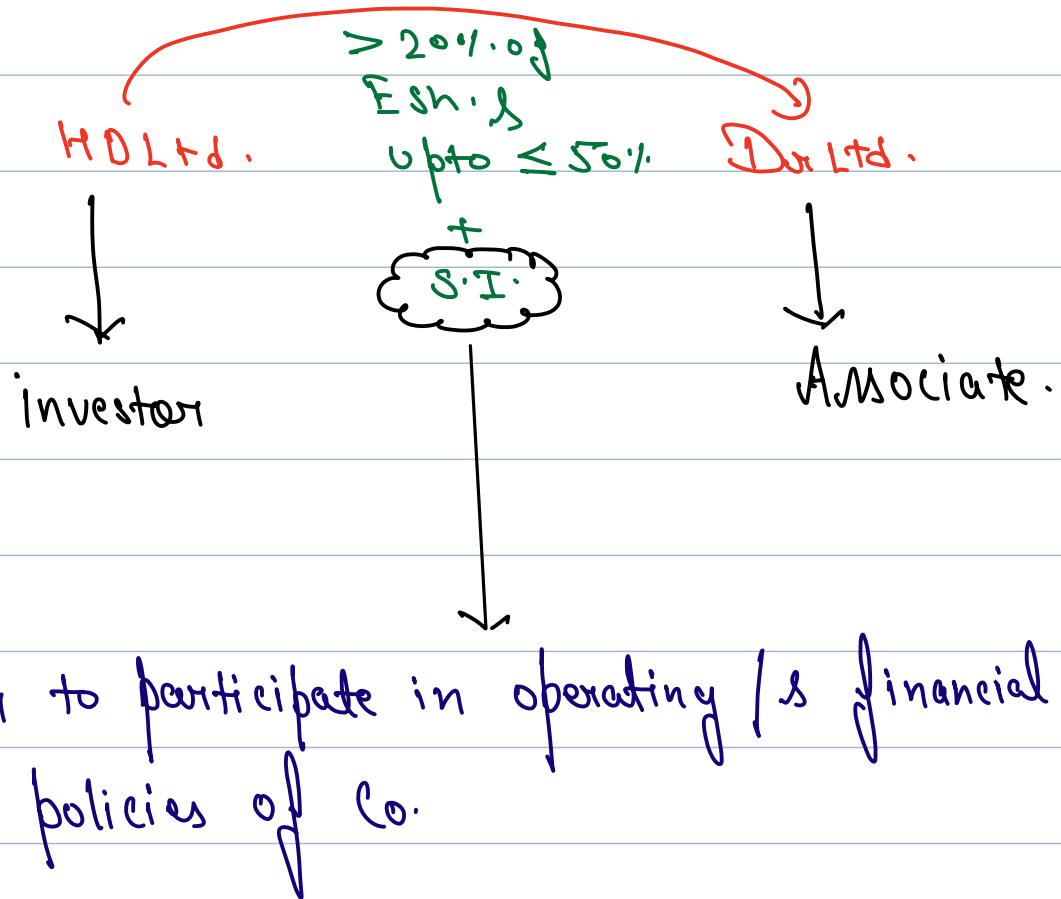 > 20% of
Esh. s
HD Ltd.
upto ≤ 50%
Dir Ltd.
+
S.I.
investor
Associate.
to participate in operating /s financial
policies of Co.